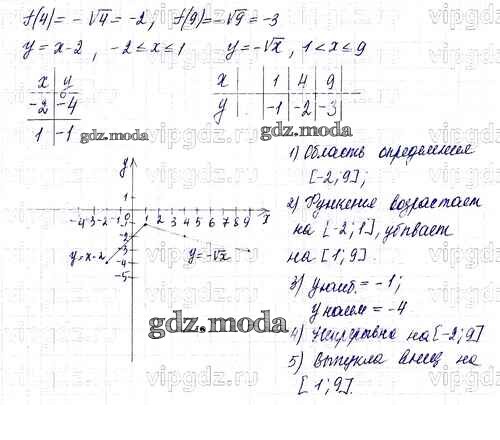 f(4) = -√4 = -2; f(9) = -√9 = -3
y = x-2, -2 ≤ x ≤ 1 y = -√x, 1 < x ≤ 9
x y x 1 4 9
-2 -4 y -1 -2 -3
1 -1
gdz.moda gdz.moda
1) Область определения
[-2; 9];
2) Функция возрастает
на [-2; 1], убывает
на [1; 9].
3) y наиб. = -1;
y наим = -4
4) Непрерывна на [-2; 9]
5) Выпукла вниз на
[1; 9].
y
1
-4 -3 -2 -1 0 1 2 3 4 5 6 7 8 9 x
-1
-2
-3
-4
-5
y = x-2 y = -√x
gdz.moda
vipgdz.ru